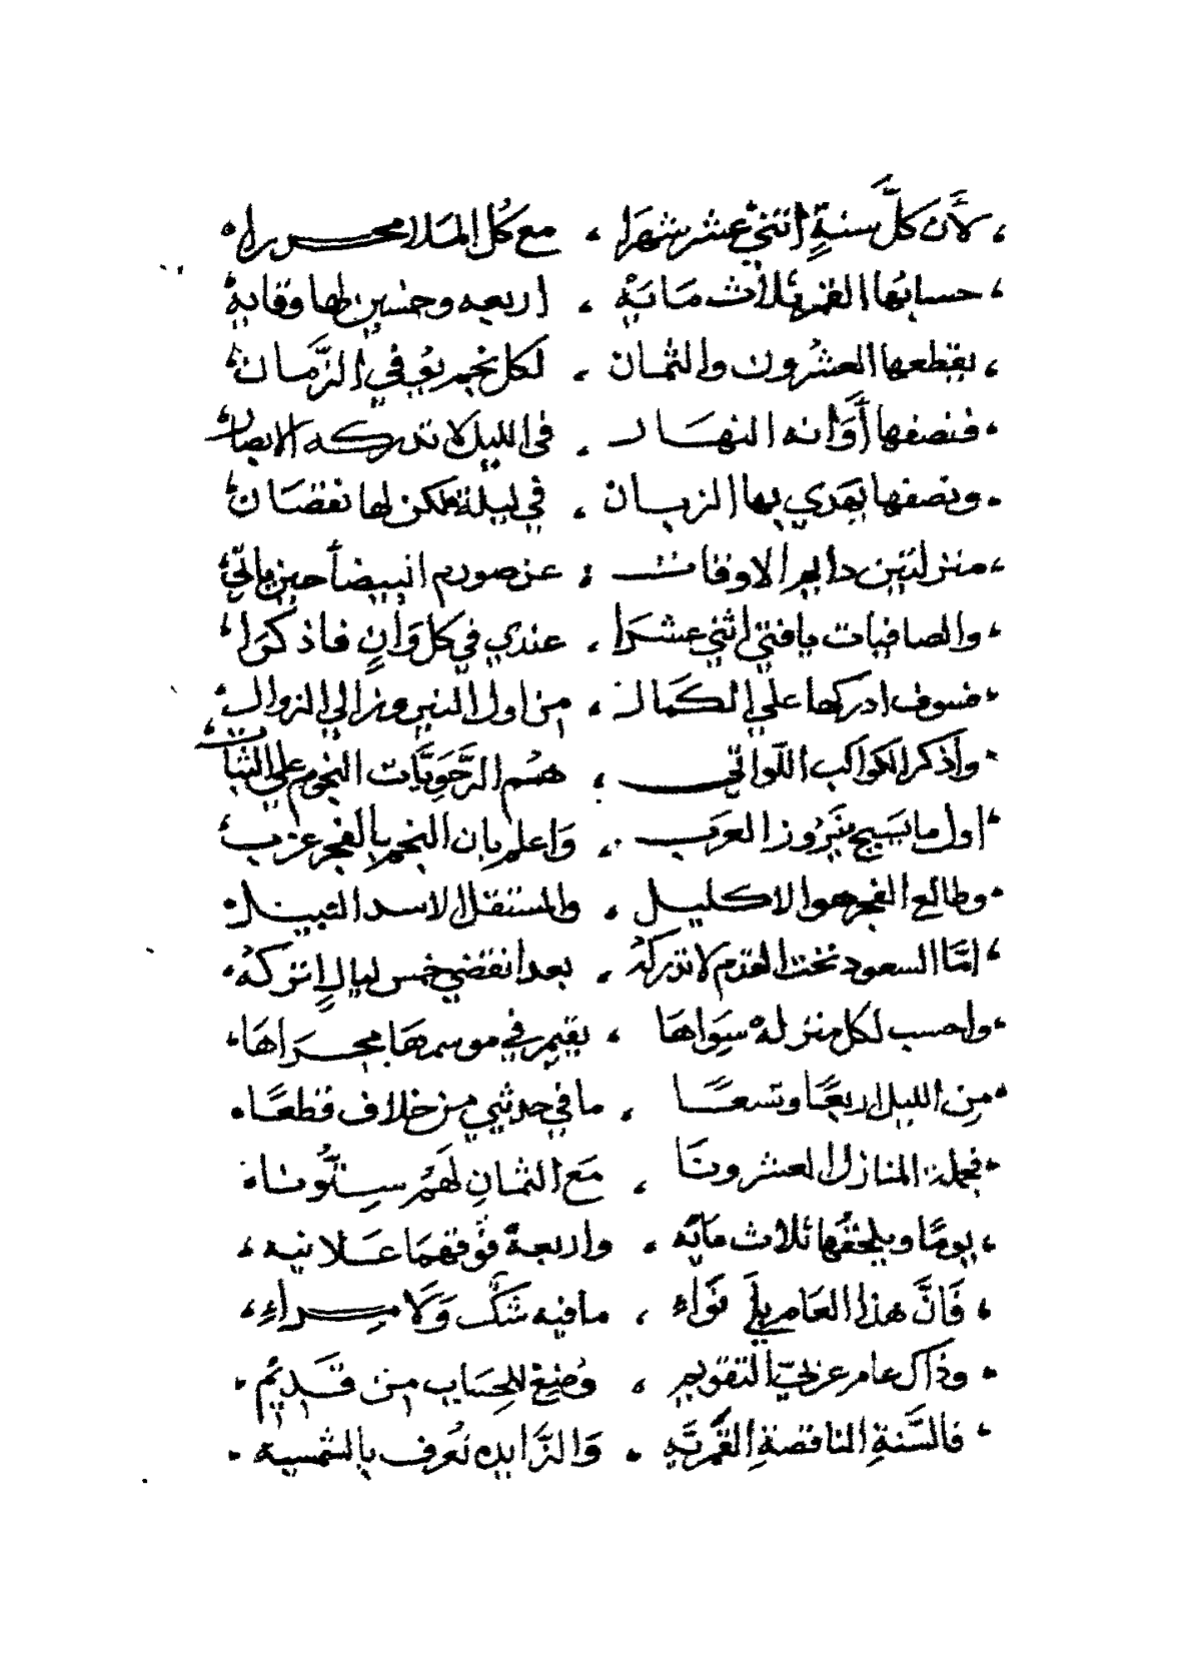 لأن كلَّ سنةٍ اثني عشر شهرَا ، مع كُل المَلا محررا
حسابها القمر ثلاث مايَهْ ، اربعه وخمسين لها وقايهْ
يقطعها العشرون والثمان ، لكل نجم يقع في الزَّمان
فنصفها أَوَانه النهار ، في الليل لا تدركه الابصار
ونصفها يهدي بها الربان ، في ليلة يمكن لها نقصَان
منزلتين دايم الاوقات ، عن صورم انبيضأ حين ياتي
والصافيات يا فتي اثني عشرَا ، عندي في كل وَانٍ فاذكرَا
فسوف ادركها علي الكمال ، من اول النيروز الي الزوال
وأذكر الكواكب اللواتي ، هم الرَّحَويَّات النجوم علي الثبات
اول ما يسيح بنَيرُوز العرَب ، وَاعلم بان النجم بالفجر غرب
وطالع الفجر هو الاكليل ، والمستقل الاسد النبيل
امَّا السعود تحت القدم لا تدركهُ ، بعد انقضي خمس ليالٍ تتركهُ
واحسب لكل منزلهْ سِوَاهَا ، يقيم في موسمهَا مجرَاهَا
مِن الليل اربعًا وتسعَا ، ما في حديثي من خلاف قطعًا
فجملة المنازل العشرونَا ، مَع الثمَانِ لهَم ستُّونا
يومًا ويلحقُها ثلاث مايَه ، واربعةٌ فوقهمَا عَلانيه
فَانَّ هذا العَام يلَي نوَاءِ ، ما فيه شَكٌّ وَلَا مِراءِ
وذَاك عام عربيّ التقويم ، وُضِعْ للحِسَاب من قَديمُ
فالسَّنةِ الناقصةِ القمَريَّهِ ، وَالزَّايده تُعرف بالشمسيه